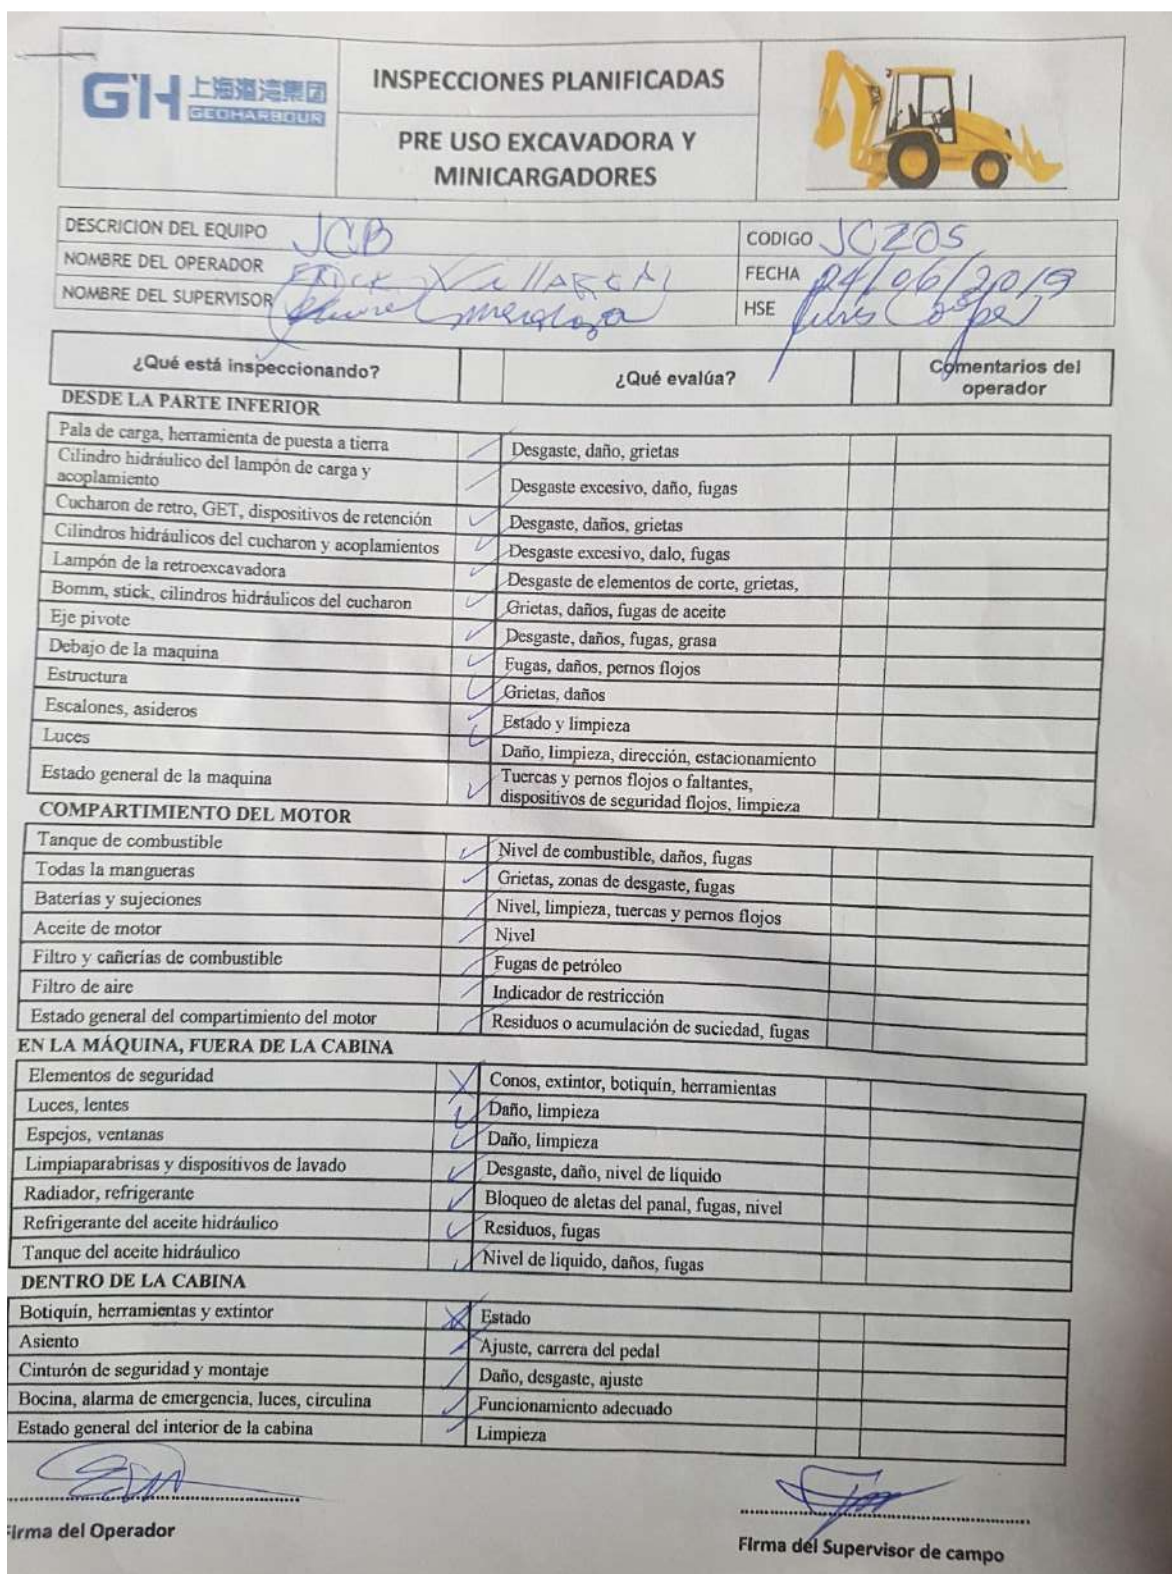 GH 上海港湾集团
GEOHARBOUR
INSPECCIONES PLANIFICADAS
PRE USO EXCAVADORA Y
MINICARGADORES
DESCRICION DEL EQUIPO JCB
CODIGO JCZ05
NOMBRE DEL OPERADOR ERICK
FECHA 24/06/2019
NOMBRE DEL SUPERVISOR Mendoza
HSE
¿Qué está inspeccionando? ¿Qué evalúa? Comentarios del
operador
DESDE LA PARTE INFERIOR
Pala de carga, herramienta de puesta a tierra Desgaste, daño, grietas
Cilindro hidráulico del lampón de carga y
acoplamiento Desgaste excesivo, daño, fugas
Cucharon de retro, GET, dispositivos de retención Desgaste, daños, grietas
Cilindros hidráulicos del cucharon y acoplamientos Desgaste excesivo, dalo, fugas
Lampón de la retroexcavadora Desgaste de elementos de corte, grietas,
Bomm, stick, cilindros hidráulicos del cucharon Grietas, daños, fugas de aceite
Eje pivote Desgaste, daños, fugas, grasa
Debajo de la maquina Fugas, daños, pernos flojos
Estructura Grietas, daños
Escalones, asideros Estado y limpieza
Luces Daño, limpieza, dirección, estacionamiento
Estado general de la maquina Tuercas y pernos flojos o faltantes,
dispositivos de seguridad flojos, limpieza
COMPARTIMIENTO DEL MOTOR
Tanque de combustible Nivel de combustible, daños, fugas
Todas la mangueras Grietas, zonas de desgaste, fugas
Baterías y sujeciones Nivel, limpieza, tuercas y pernos flojos
Aceite de motor Nivel
Filtro y cañerías de combustible Fugas de petróleo
Filtro de aire Indicador de restricción
Estado general del compartimiento del motor Residuos o acumulación de suciedad, fugas
EN LA MÁQUINA, FUERA DE LA CABINA
Elementos de seguridad Conos, extintor, botiquín, herramientas
Luces, lentes Daño, limpieza
Espejos, ventanas Daño, limpieza
Limpiaparabrisas y dispositivos de lavado Desgaste, daño, nivel de líquido
Radiador, refrigerante Bloqueo de aletas del panal, fugas, nivel
Refrigerante del aceite hidráulico Residuos, fugas
Tanque del aceite hidráulico Nivel de liquido, daños, fugas
DENTRO DE LA CABINA
Botiquín, herramientas y extintor Estado
Asiento Ajuste, carrera del pedal
Cinturón de seguridad y montaje Daño, desgaste, ajuste
Bocina, alarma de emergencia, luces, circulina Funcionamiento adecuado
Estado general del interior de la cabina Limpieza
Firma del Operador
Firma del Supervisor de campo